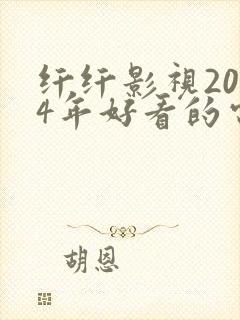 纤纤影視20
4年好看的
胡恩